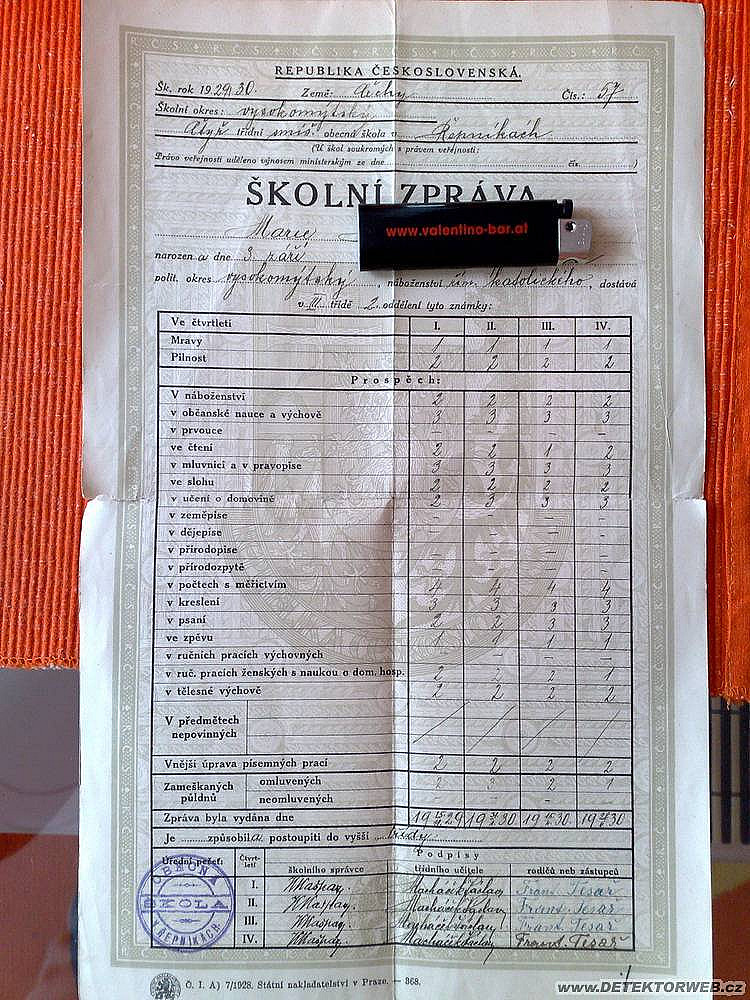 REPUBLIKA ČESKOSLOVENSKÁ.
Šk. rok 1929/30. Země: Čechy Čís.: 57
Školní okres: vysokomýtský
čtyř třídní smíš. obecná škola v Řepníkách
(U škol soukromých s právem veřejnosti:
Právo veřejnosti uděleno výnosem ministerským ze dne čís. )
ŠKOLNÍ ZPRÁVA
Marie
www.valentino-bar.at
narozena dne 3. září
polit. okres vysokomýtský, náboženství řím. katolického, dostává
v III. třídě 2. oddělení tyto známky:
Ve čtvrtletí I. II. III. IV.
Mravy 1 1 1 1
Pilnost 2 2 2 2
Prospěch:
V náboženství 2 2 2 2
v občanské nauce a výchově 3 3 3 3
v prvouce – – – –
ve čtení 2 2 1 2
v mluvnici a v pravopise 3 3 3 3
ve slohu 2 2 2 2
v učení o domovině 2 3 3 3
v zeměpise – – – –
v dějepise – – – –
v přírodopise – – – –
v přírodozpytě – – – –
v počtech s měřictvím 4 4 4 4
v kreslení 3 3 3 3
v psaní 2 2 3 3
ve zpěvu 1 1 1 1
v ručních pracích výchovných – – – –
v ruč. pracích ženských s naukou o dom. hosp. 2 2 2 1
v tělesné výchově 2 2 2 2
V předmětech nepovinných
Vnější úprava písemných prací 2 2 2 2
Zameškaných půldnů omluvených 2 3 2 1
neomluvených –
Zpráva byla vydána dne 19 29 19 30 19 30 19 30
Je způsobilá postoupiti do vyšší třídy
Úřední pečeť: Čtvrtletí Podpisy
školního správce třídního učitele rodičů neb zástupců
I. Macháček Václav Frant. Tesař
II. Macháček Václav Frant. Tesař
III. Macháček Václav Frant. Tesař
IV. Macháček Václav Frant. Tesař
OBECNÁ ŠKOLA V ŘEPNÍKÁCH
Č. I. A) 7/1928. Státní nakladatelství v Praze. — 368.
www.DETEKTORWEB.cz